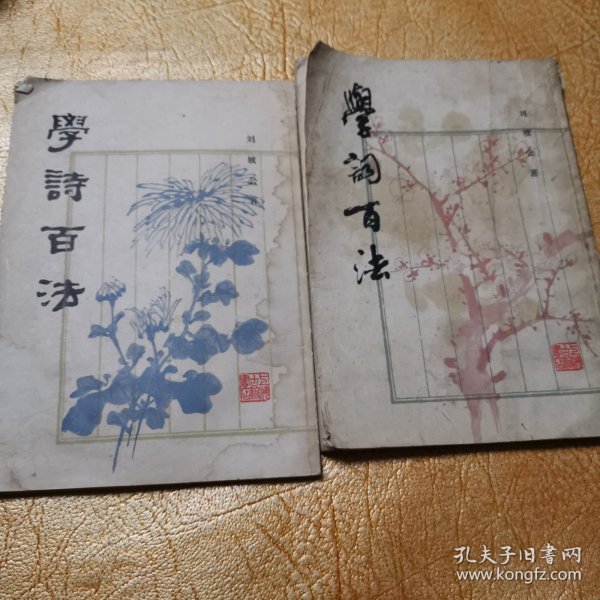 學詩百法
刘坡公著
學詞百法
刘坡公著
孔夫子旧书网
www.kongfz.com